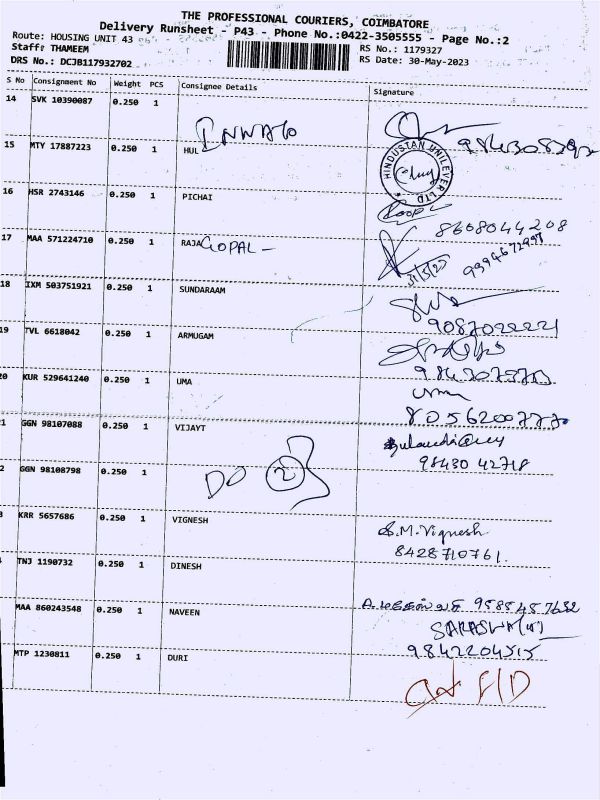 THE PROFESSIONAL COURIERS, COIMBATORE
Delivery Runsheet - P43 - Phone No.:0422-3505555 - Page No.:2
Route: HOUSING UNIT 43
RS No.: 1179327
Staff: THAMEEM
RS Date: 30-May-2023
DRS No.: DCJB117932702
S No Consignment No Weight PCS Consignee Details Signature
14 SVK 10390087 0.250 1
15 MTY 17887223 0.250 1 HUL
HINDUSTAN UNILEVER LTD
16 HSR 2743146 0.250 1 PICHAI
8608044208
17 MAA 571224710 0.250 1 RAJAGOPAL -
31/5/23 9394672998
18 IXM 503751921 0.250 1 SUNDARAAM
19 TVL 6618042 0.250 1 ARMUGAM
20 KUR 529641240 0.250 1 UMA
1 GGN 98107088 0.250 1 VIJAYT
98430 42718
2 GGN 98108798 0.250 1
DO 2
3 KRR 5657686 0.250 1 VIGNESH
S.M.Vignesh
8428710761.
TNJ 1190732 0.250 1 DINESH
MAA 860243548 0.250 1 NAVEEN
9585457632
9842204515
MTP 1230811 0.250 1 DURI